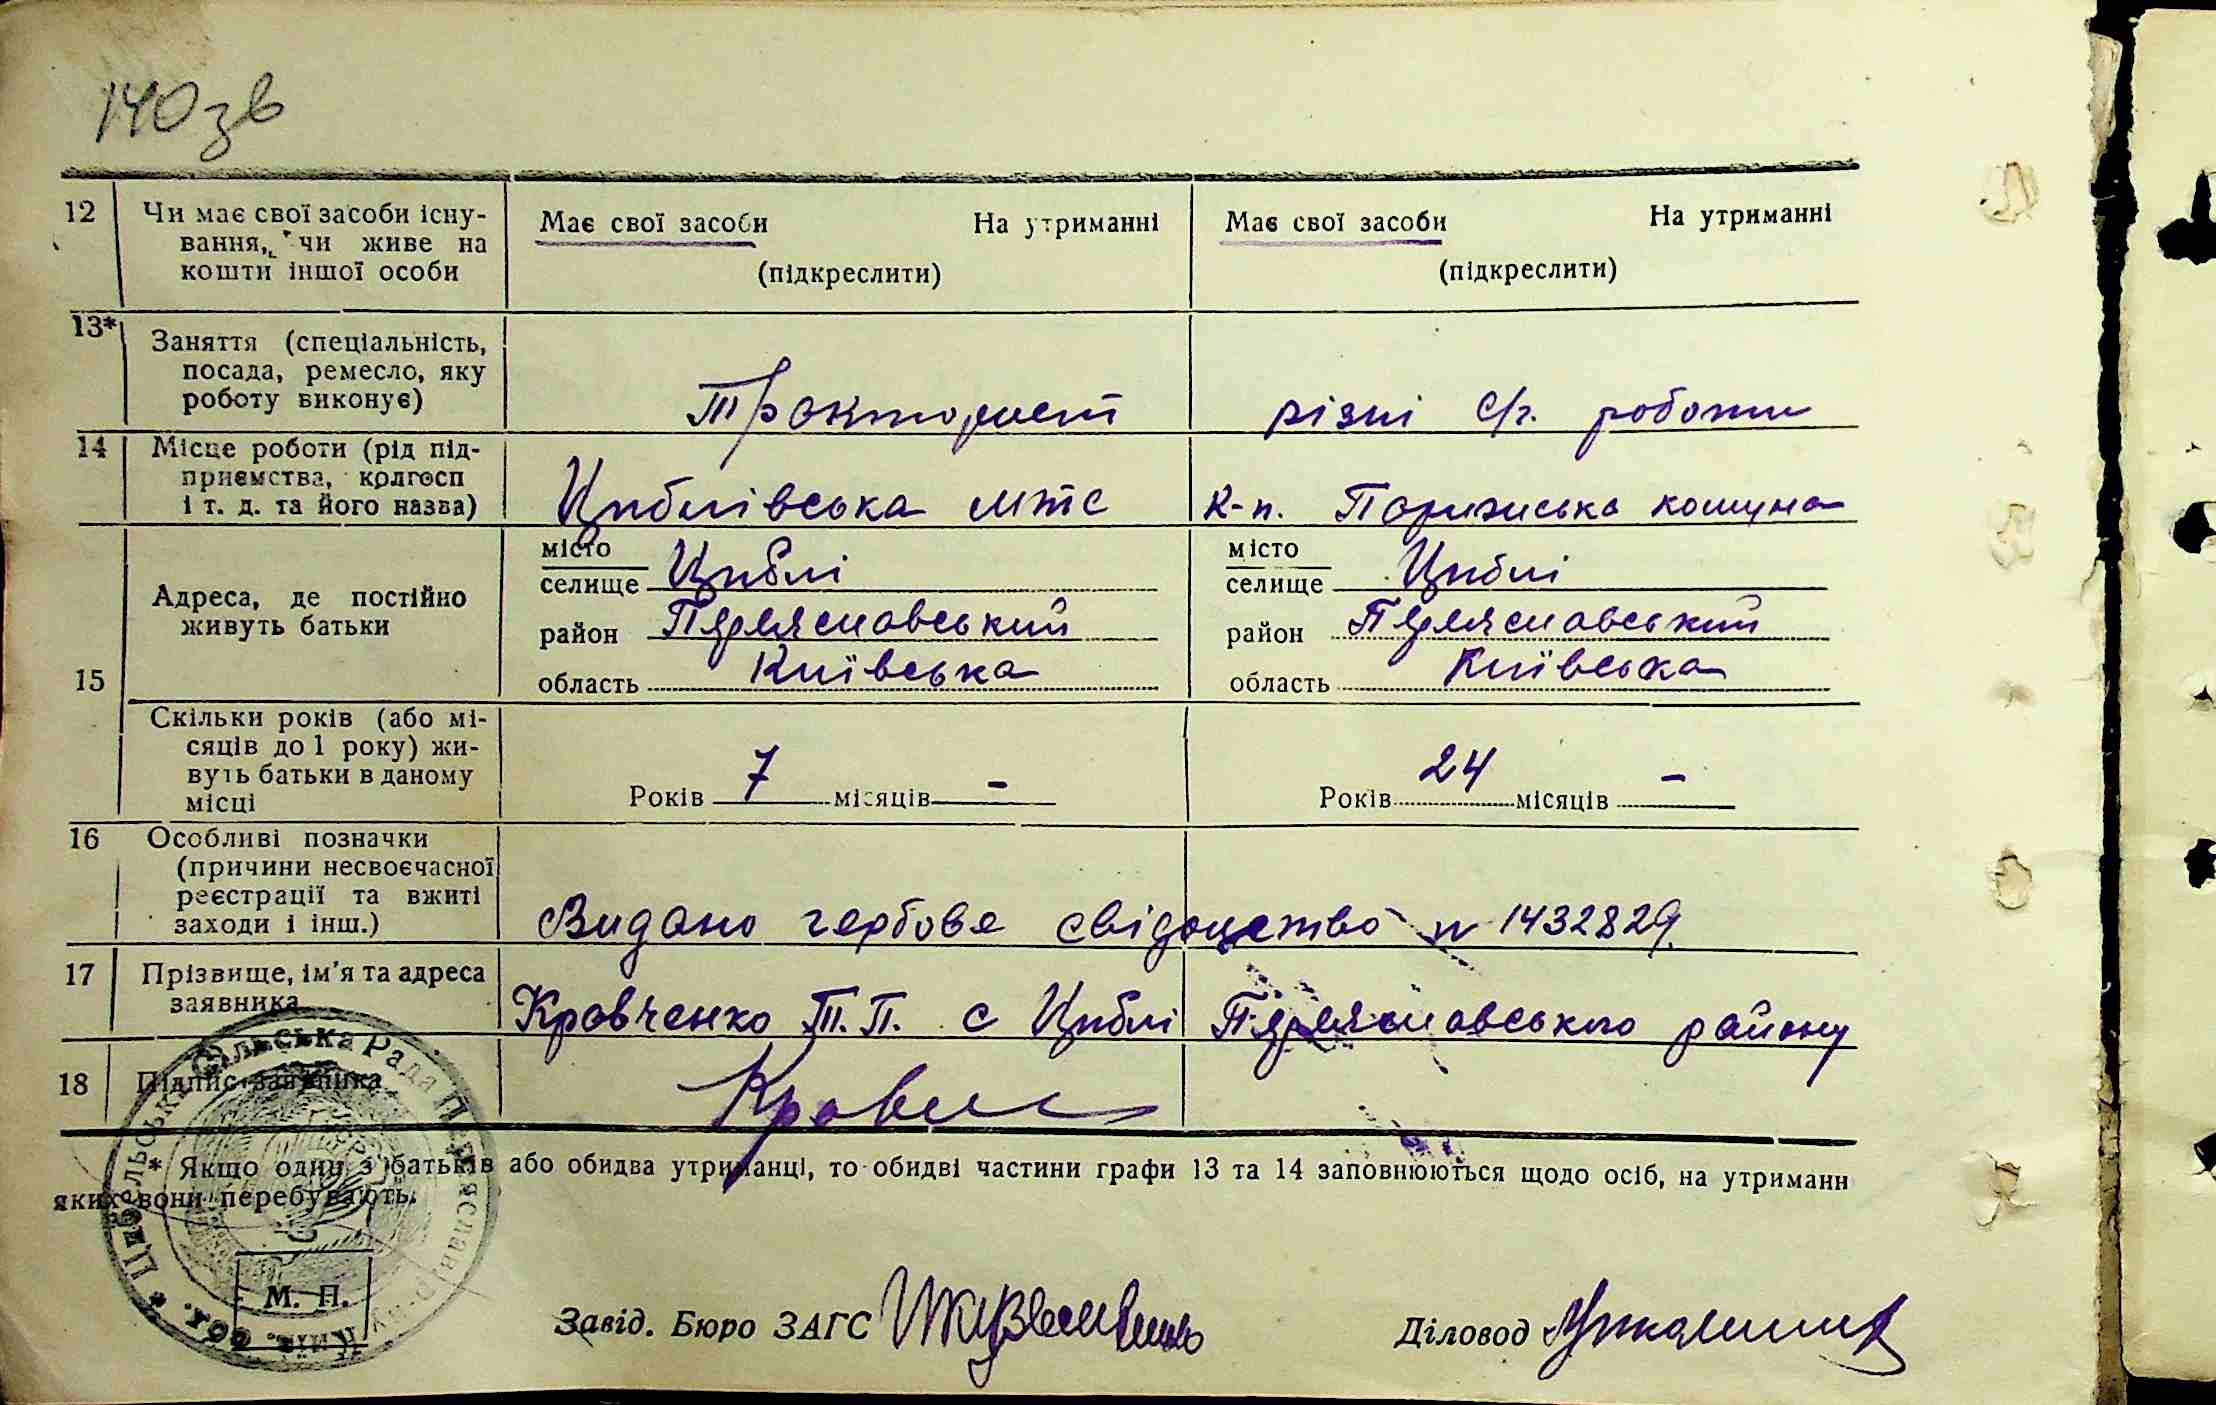 140 зв
12 Чи має свої засоби існу-
вання, чи живе на
кошти іншої особи
Має свої засоби На утриманні
(підкреслити)
Має свої засоби На утриманні
(підкреслити)
13* Заняття (спеціальність,
посада, ремесло, яку
роботу виконує)
Тракторист
різні с/г. роботи
14 Місце роботи (рід під-
приємства, колгосп
і т. д. та його назва)
Циблівська МТС
к-п. Паризська комуна
15 Адреса, де постійно
живуть батьки
місто
селище Циблі
район Переяславський
область Київська
місто
селище Циблі
район Переяславський
область Київська
Скільки років (або мі-
сяців до 1 року) жи-
вуть батьки в даному
місці
Років 7 місяців -
Років 24 місяців -
16 Особливі позначки
(причини несвоєчасної
реєстрації та вжиті
заходи і інш.)
Видано гербове свідоцтво н 1432829.
17 Прізвище, ім'я та адреса
заявника
Кравченко Т. П. с Циблі Переяславського району
18 Підпис заявника
* Якщо один з батьків або обидва утриманці, то обидві частини графи 13 та 14 заповнюються щодо осіб, на утриманн
яких вони перебувають.
Сільська Рада
Київ. обл.
М. П.
Завід. Бюро ЗАГС
Діловод